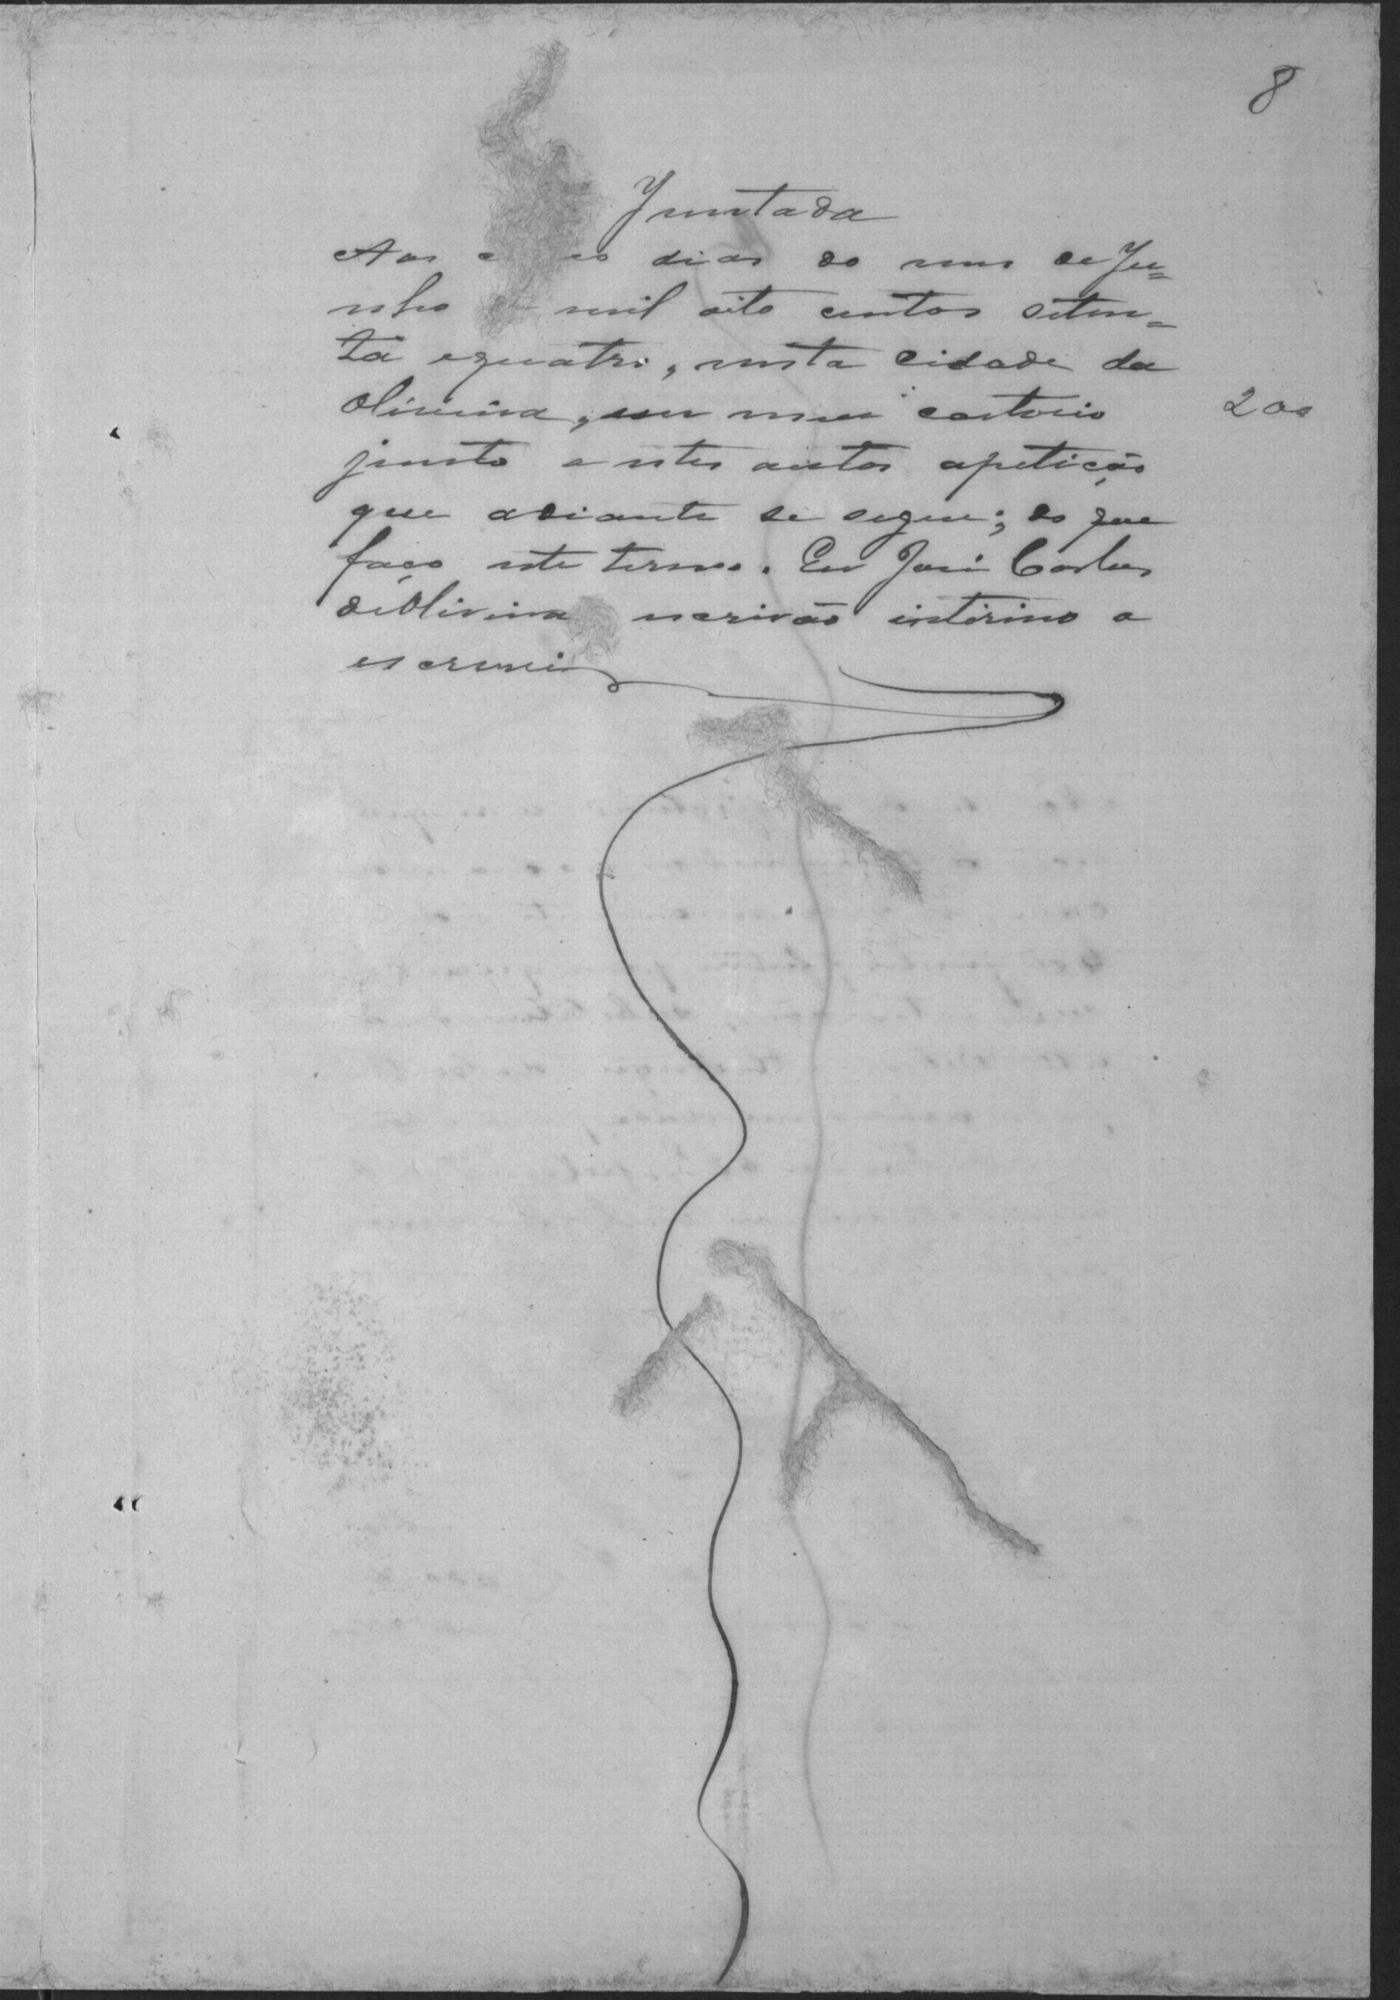 8
Juntada
Aos dias do mes de Ju=
nho mil oito centos seten=
ta equatro, nesta Cidade da
Oliveira, em meu cartorio
200
junto a estes autos apetição
que adiante se segue; do que
faço este termo. Eu José Carlos
deOliveira escrivão interino o
escrevi